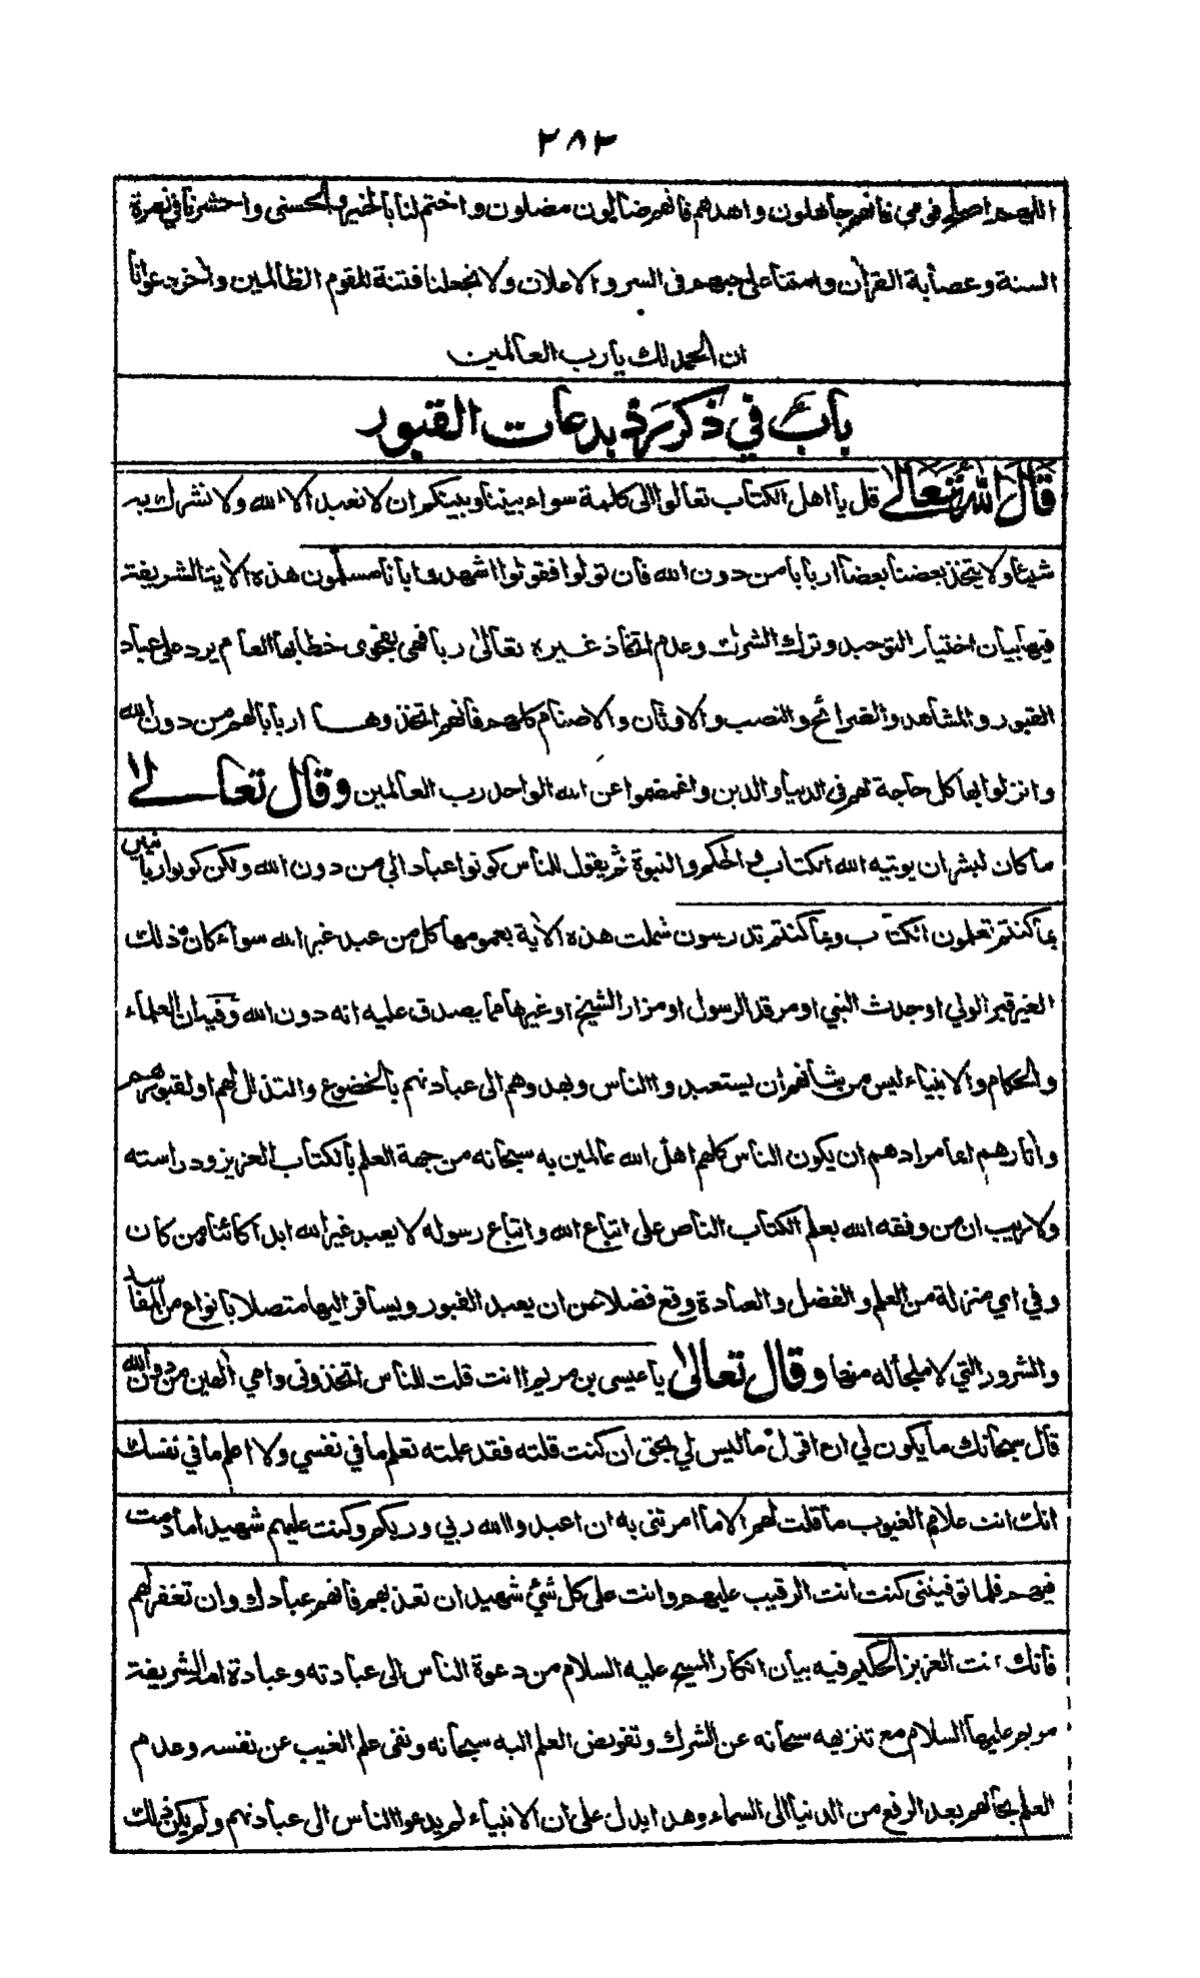 ٢٨٣
اللهم اصلح قومي فانهم جاهلون واهدهم فانهم ضالون مضلون واختم لنا بالخير والحسنى واحشرنا في نصرة
السنة وعصابة القرآن وامتنا على حبهم في السر والاعلان ولا تجعلنا فتنة للقوم الظالمين واخر دعوانا
ان الحمد لك يا رب العالمين
باب في ذكر رد بدعات القبور
قال الله تعالى قل يا اهل الكتاب تعالوا الى كلمة سواء بيننا وبينكم ان لا نعبد الا الله ولا نشرك به
شيئا ولا يتخذ بعضنا بعضا اربابا من دون الله فان تولوا فقولوا اشهدوا بانا مسلمون هذه الاية الشريفة
فيها بيان اختيار التوحيد وترك الشرك وعدم اتخاذ غيره تعالى ربا فهي بفحوى خطابها العام يرد على عباد
القبور والمشاهد والضرائح والنصب والاوثان والاصنام كلهم فانهم اتخذوها اربابا لهم من دون الله
وانزلوا بها كل حاجة لهم في الدنيا والدين واغمضوا عن الله الواحد رب العالمين وقال تعالى
ما كان لبشر ان يوتيه الله الكتاب والحكم والنبوة ثم يقول للناس كونوا عبادا لي من دون الله ولكن كونوا ربانيين
بما كنتم تعلمون الكتاب وبما كنتم تدرسون شملت هذه الاية بعمومها كل من عبد غير الله سواء كان ذلك
الغير قبر الولي او جدث النبي او مرقد الرسول او مزار الشيخ او غيرها مما يصدق عليه انه دون الله وفيه ان العلماء
والحكام والانبياء ليس من شانهم ان يستعبدوا الناس ويهدوهم الى عبادتهم بالخضوع والتذلل لهم او لقبورهم
واثارهم انما مرادهم ان يكون الناس كلهم اهل الله عالمين به سبحانه من جهة العلم بالكتاب العزيز ودراسته
ولا ريب ان من وفقه الله بعلم الكتاب الناص على اتباع الله واتباع رسوله لا يعبد غير الله ابدا كائنا من كان
وفي اي منزلة من العلم والفضل والعبادة وقع فضلا عن ان يعبد القبور ويسافر اليها متصلا بانواع من المفاسد
والشرور التي لا ملجأ له منها وقال تعالى يا عيسى بن مريم اانت قلت للناس اتخذوني وامي الهين من دون الله
قال سبحانك ما يكون لي ان اقول ما ليس لي بحق ان كنت قلته فقد علمته تعلم ما في نفسي ولا اعلم ما في نفسك
انك انت علام الغيوب ما قلت لهم الا ما امرتني به ان اعبدوا الله ربي وربكم وكنت عليهم شهيدا ما دمت
فيهم فلما توفيتني كنت انت الرقيب عليهم وانت على كل شئ شهيد ان تعذبهم فانهم عبادك وان تغفر لهم
فانك انت العزيز الحكيم فيه بيان انكار المسيح عليه السلام من دعوة الناس الى عبادته وعبادة امه الشريفة
مريم عليها السلام مع تنزيهه سبحانه عن الشرك وتفويض العلم اليه سبحانه ونفي علم الغيب عن نفسه وعدم
العلم بحالهم بعد الرفع من الدنيا الى السماء وهذا يدل على ان الانبياء لم يدعوا الناس الى عبادتهم ولم يكن ذلك